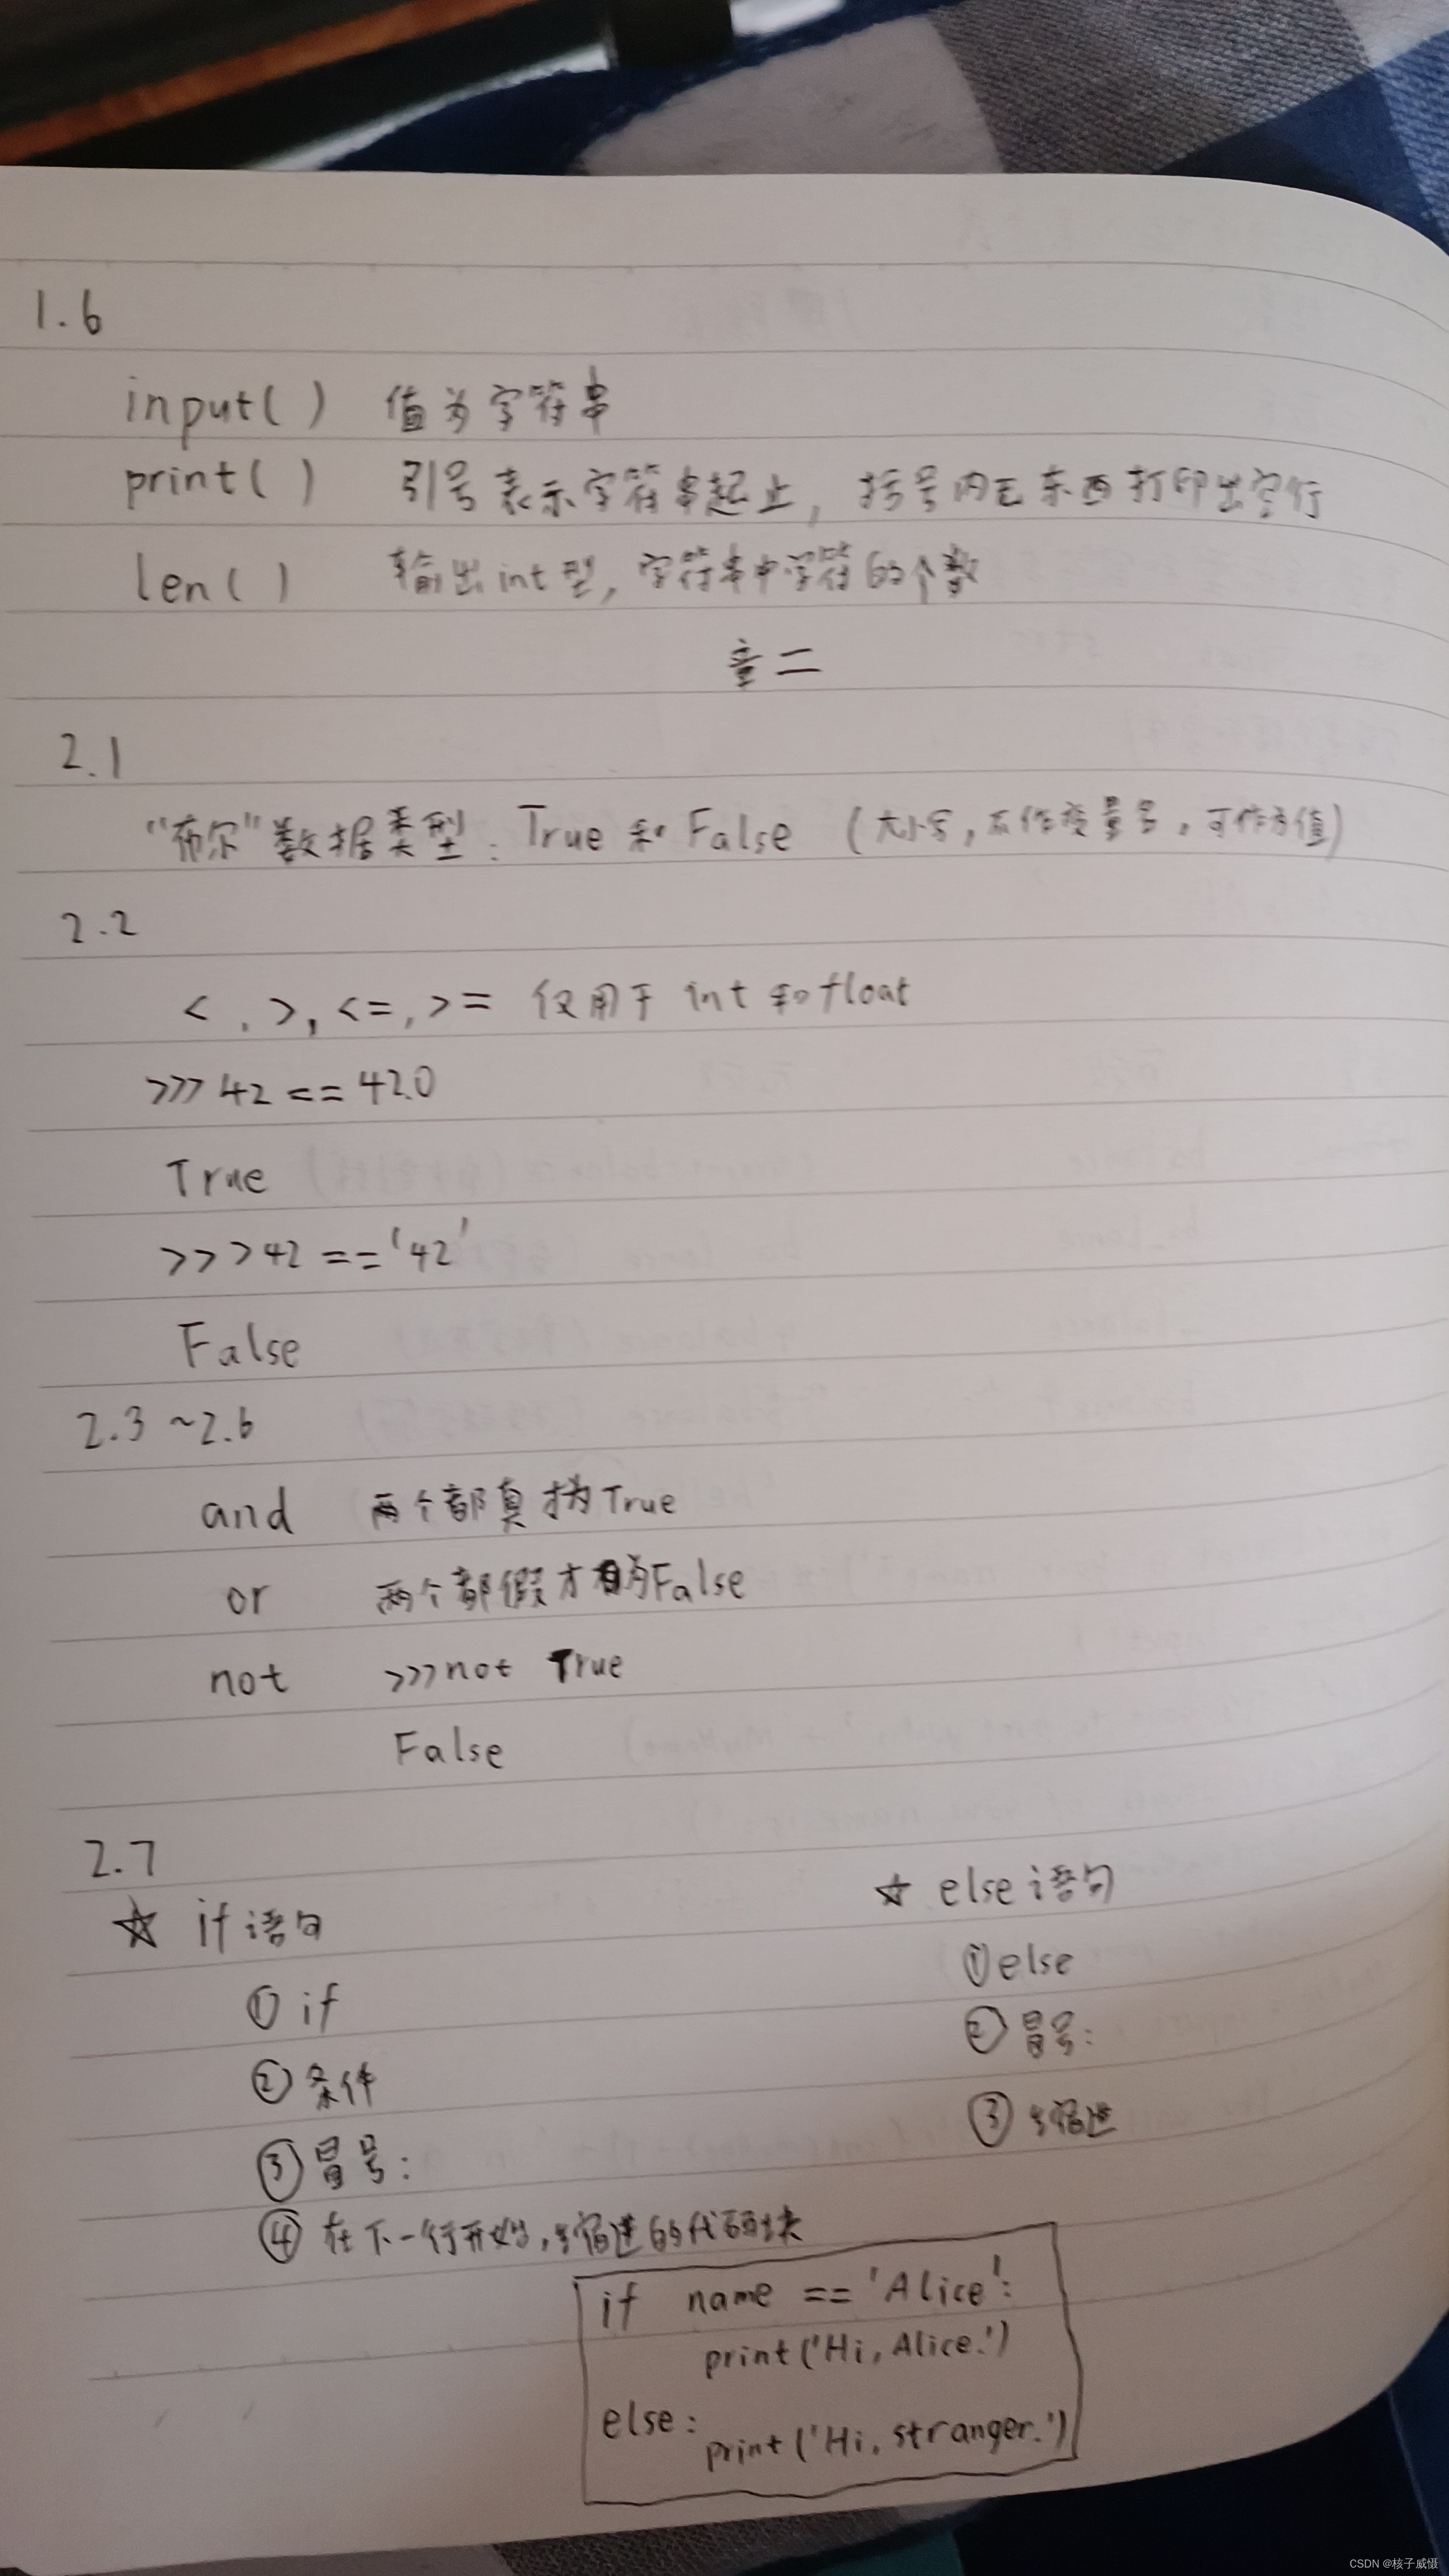 1.6
input( ) 值为字符串
print( ) 引号表示字符串起止，括号内无东西打印出空行
len( ) 输出int型，字符串中字符的个数
章二
2.1
"布尔"数据类型：True 和 False （大小写，不作变量名，可作为值）
2.2
< , >, <=, >= 仅用于 int 和 float
>>> 42 == 42.0
True
>>> 42 == '42'
False
2.3 ~2.6
and 两个都真才为True
or 两个都假才为False
not >>> not True
False
2.7
☆ if 语句
① if
② 条件
③ 冒号：
④ 在下一行开始，缩进的代码块
☆ else 语句
① else
② 冒号：
③ 缩进
if name == 'Alice':
print('Hi, Alice.')
else:
print('Hi, stranger.')
CSDN @核子威慑